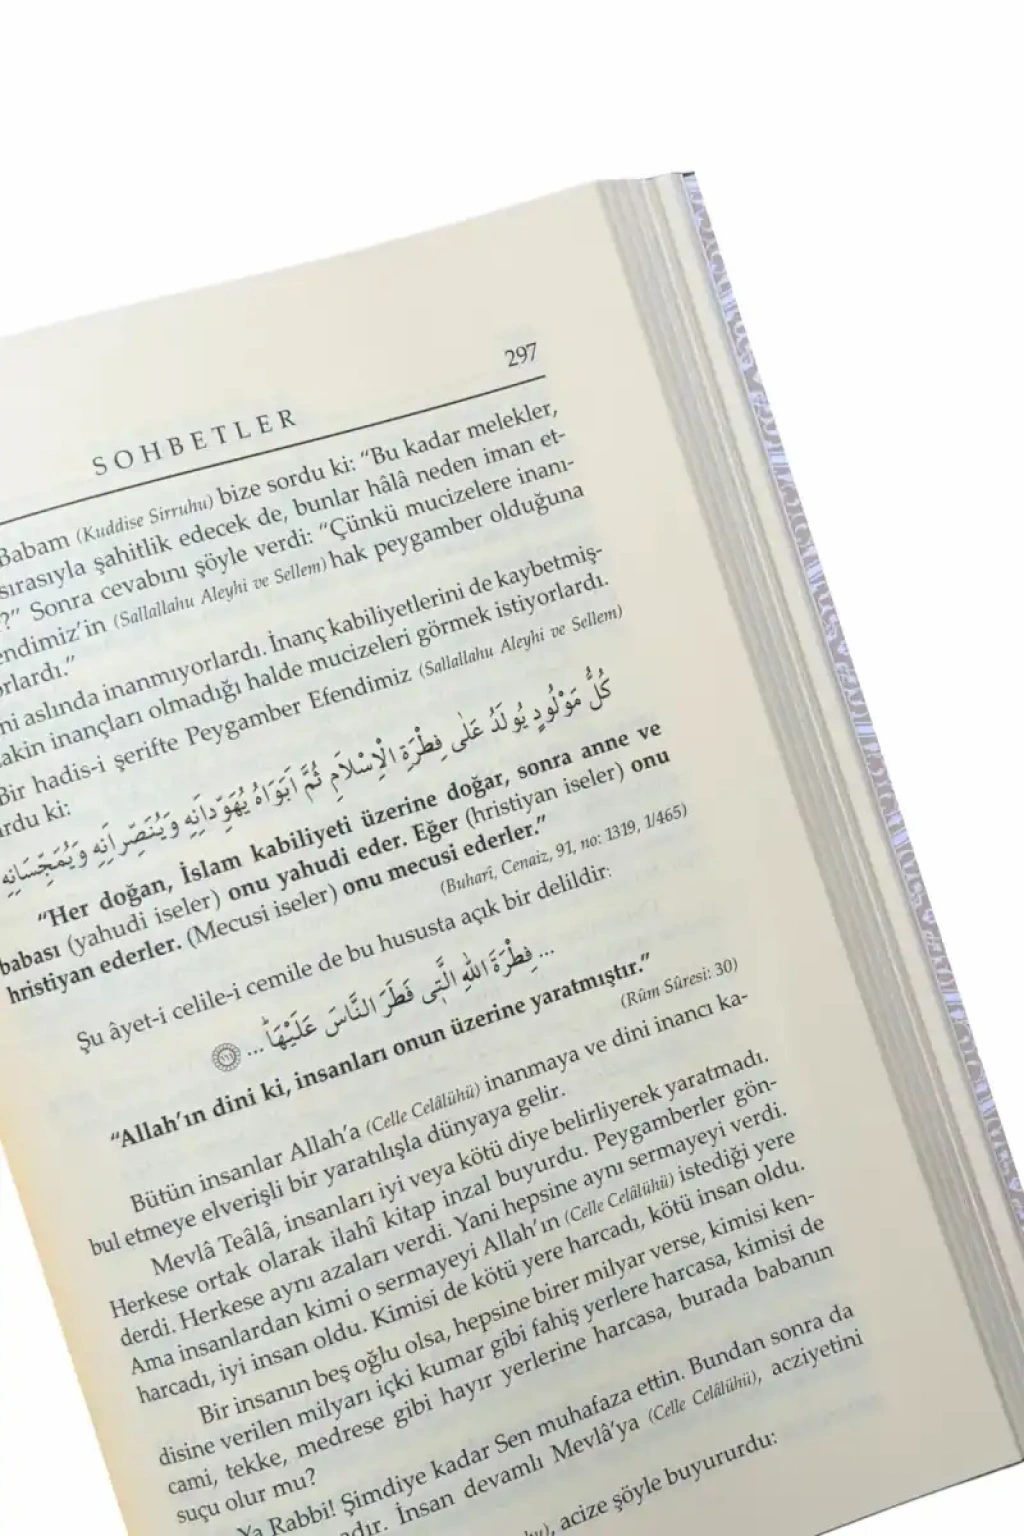 297
SOHBETLER
Babam (Kuddise Sirruhu) bize sordu ki: “Bu kadar melekler,
sırasıyla şahitlik edecek de, bunlar hâlâ neden iman et-
?” Sonra cevabını şöyle verdi: “Çünkü mucizelere inanı-
endimiz’in (Sallallahu Aleyhi ve Sellem) hak peygamber olduğuna
orlardı.”
ni aslında inanmıyorlardı. İnanç kabiliyetlerini de kaybetmiş-
akin inançları olmadığı halde mucizeleri görmek istiyorlardı.
Bir hadis-i şerifte Peygamber Efendimiz (Sallallahu Aleyhi ve Sellem)
urdu ki:
كُلُّ مَوْلُودٍ يُولَدُ عَلٰى فِطْرَةِ الْاِسْلَامِ ثُمَّ اَبَوَاهُ يُهَوِّدَانِهِ وَيُنَصِّرَانِهِ وَيُمَجِّسَانِهِ
“Her doğan, İslam kabiliyeti üzerine doğar, sonra anne ve
babası (yahudi iseler) onu yahudi eder. Eğer (hristiyan iseler) onu
hristiyan ederler. (Mecusi iseler) onu mecusi ederler.”
(Buharî, Cenaiz, 91, no: 1319, 1/465)
Şu âyet-i celile-i cemile de bu hususta açık bir delildir:
... فِطْرَةَ اللّٰهِ الَّتٖى فَطَرَ النَّاسَ عَلَيْهَاؕ ...
“Allah’ın dini ki, insanları onun üzerine yaratmıştır.”
(Rûm Sûresi: 30)
Bütün insanlar Allah’a (Celle Celâlühü) inanmaya ve dini inancı ka-
bul etmeye elverişli bir yaratılışla dünyaya gelir.
Mevlâ Teâlâ, insanları iyi veya kötü diye belirliyerek yaratmadı.
Herkese ortak olarak ilahî kitap inzal buyurdu. Peygamberler gön-
derdi. Herkese aynı azaları verdi. Yani hepsine aynı sermayeyi verdi.
Ama insanlardan kimi o sermayeyi Allah’ın (Celle Celâlühü) istediği yere
harcadı, iyi insan oldu. Kimisi de kötü yere harcadı, kötü insan oldu.
Bir insanın beş oğlu olsa, hepsine birer milyar verse, kimisi ken-
disine verilen milyarı içki kumar gibi fahiş yerlere harcasa, kimisi de
cami, tekke, medrese gibi hayır yerlerine harcasa, burada babanın
suçu olur mu?
Ya Rabbi! Şimdiye kadar Sen muhafaza ettin. Bundan sonra da
adır. İnsan devamlı Mevlâ’ya (Celle Celâlühü), acziyetini
hu), acize şöyle buyururdu: